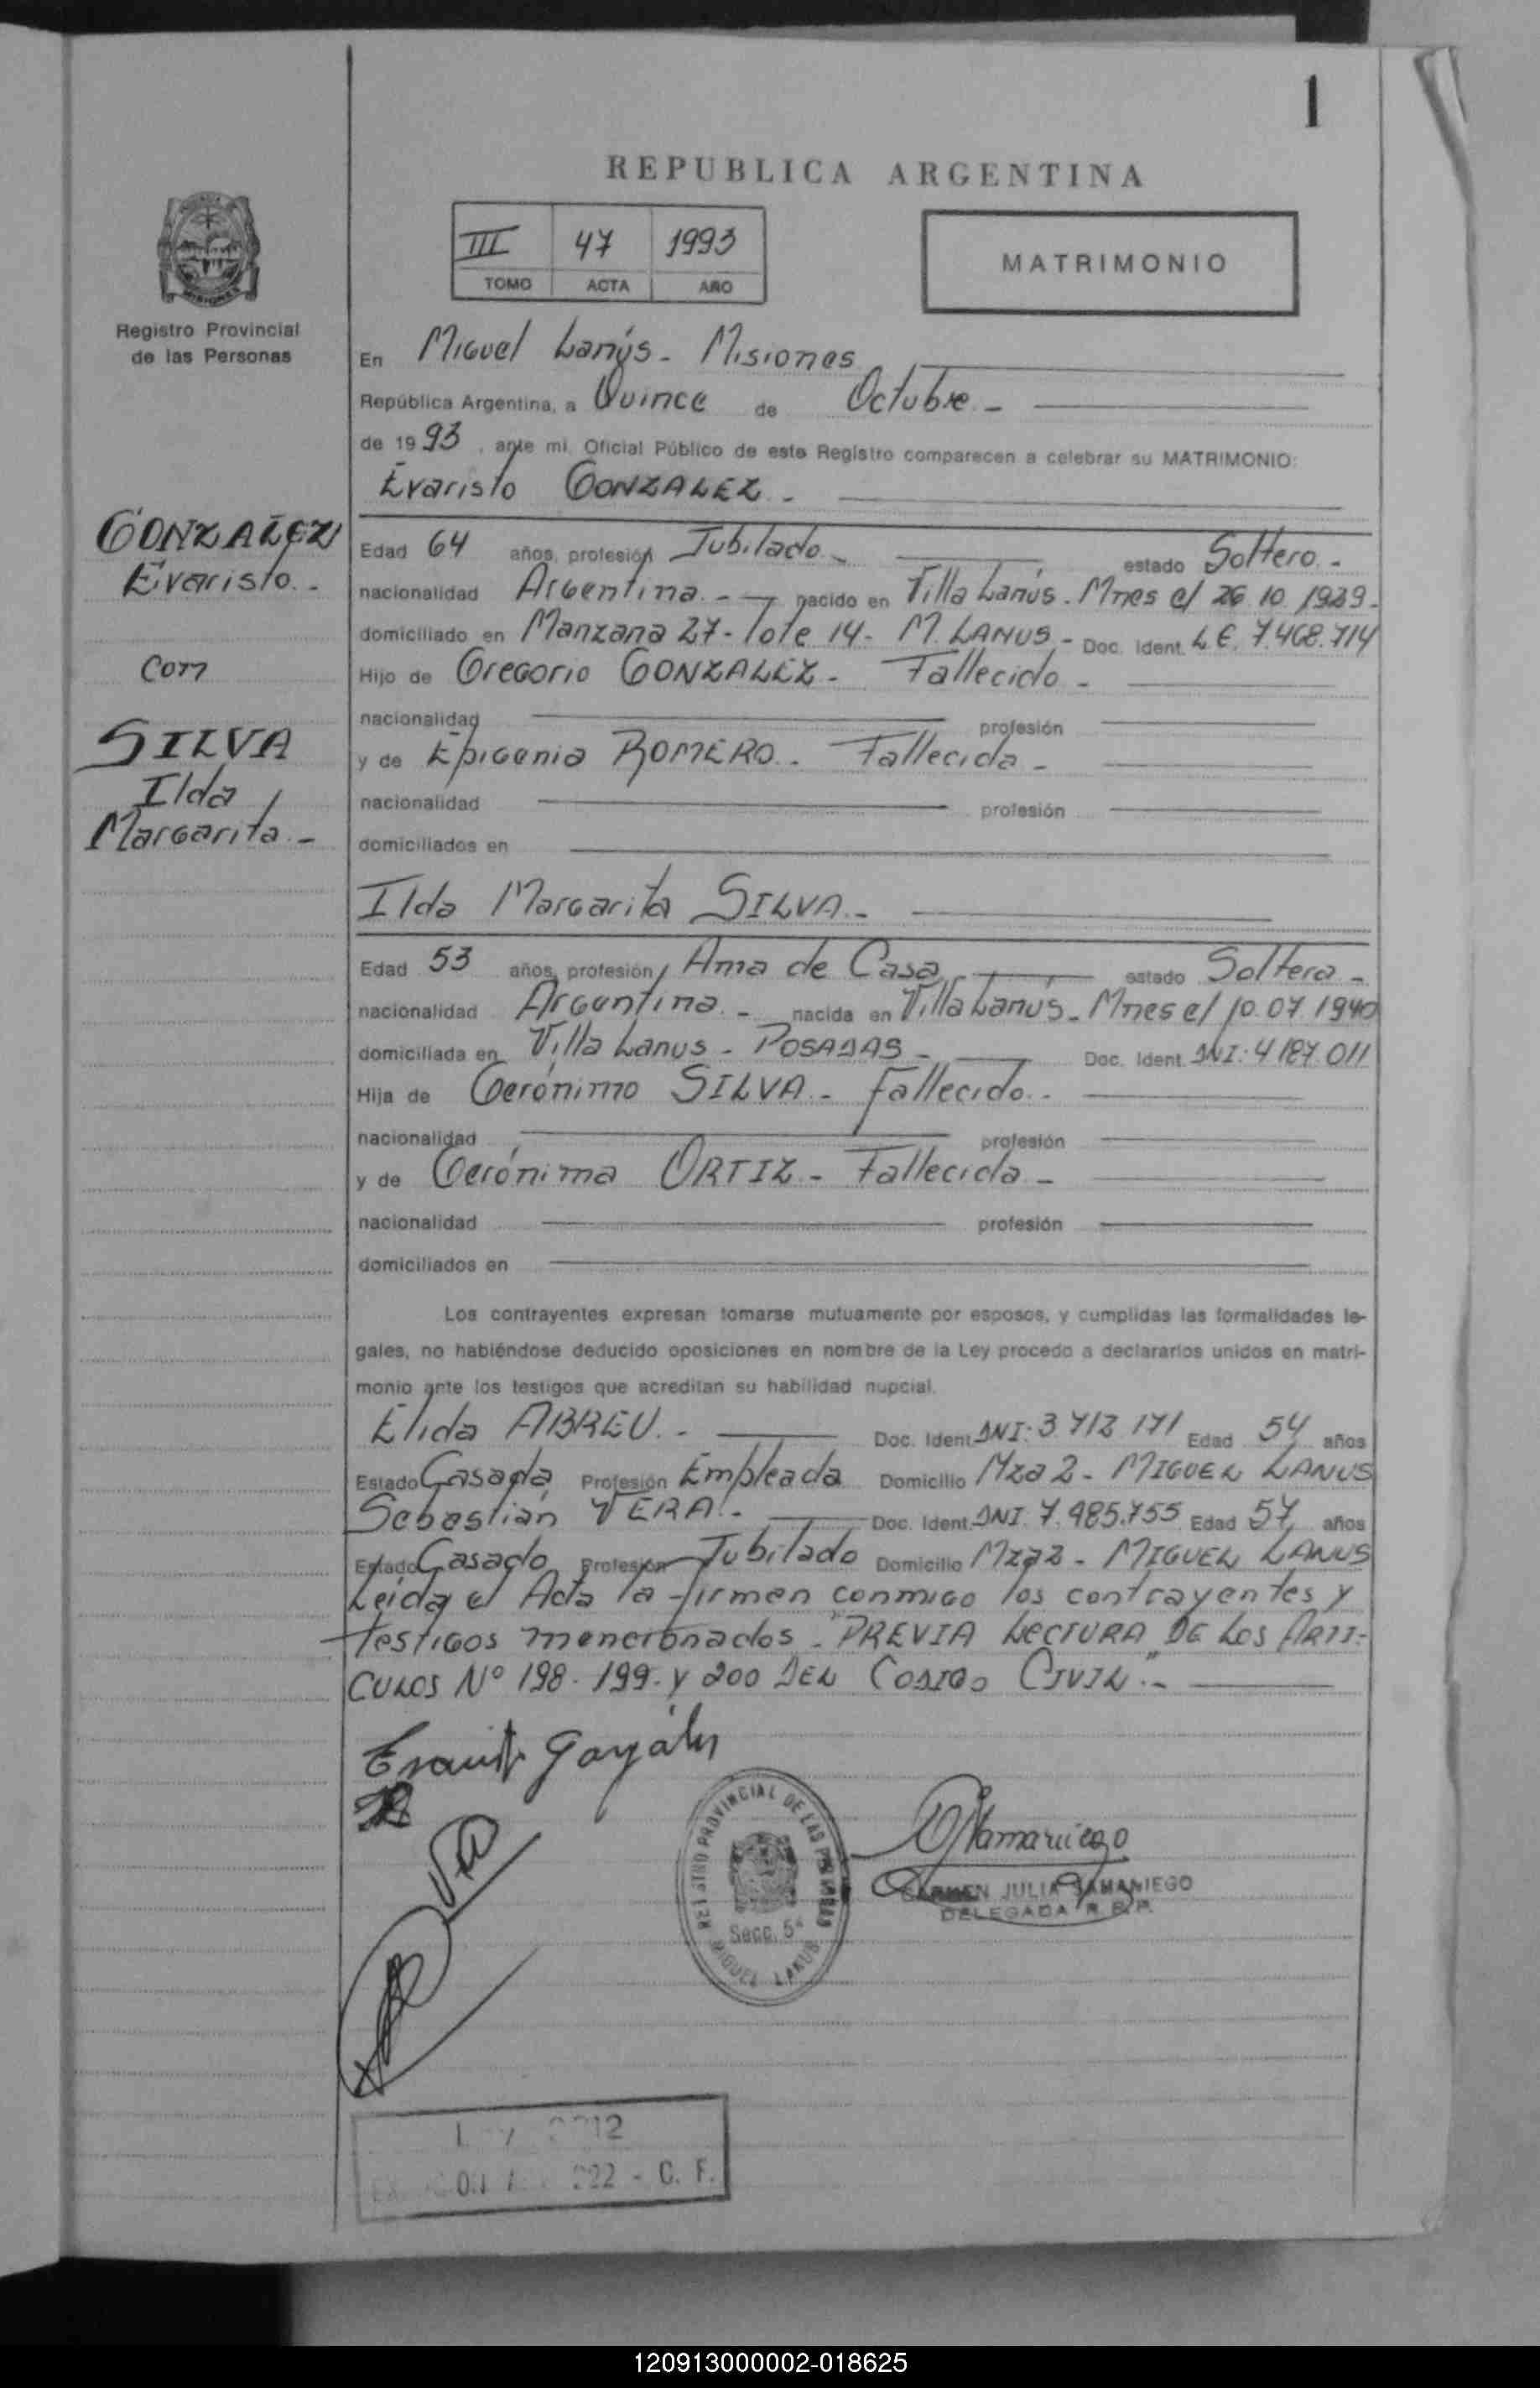 1
REPUBLICA ARGENTINA
III 47 1993
TOMO ACTA AÑO
MATRIMONIO
Registro Provincial
de las Personas
En Miguel Lanús - Misiones
República Argentina, a Quince de Octubre -
de 1993, ante mi, Oficial Público de este Registro comparecen a celebrar su MATRIMONIO:
Evaristo GONZALEZ -
GONZALEZ
Evaristo -
Con
SILVA
Ilda
Margarita -
Edad 64 años, profesión Jubilado - estado Soltero -
nacionalidad Argentina - nacido en Villa Lanús - Mnes el 26.10.1929 -
domiciliado en Manzana 27 - Lote 14 - M. LANUS - Doc. Ident. L.E. 7.468.714
Hijo de Gregorio GONZALEZ - Fallecido -
nacionalidad profesión
y de Epigenia ROMERO - Fallecida -
nacionalidad profesión
domiciliados en
Ilda Margarita SILVA -
Edad 53 años, profesión Ama de Casa estado Soltera -
nacionalidad Argentina - nacida en Villa Lanús - Mnes el 10.07.1940
domiciliada en Villa Lanus - POSADAS - Doc. Ident. DNI: 4187.011
Hija de Gerónimo SILVA - Fallecido -
nacionalidad profesión
y de Gerónima ORTIZ - Fallecida -
nacionalidad profesión
domiciliados en
Los contrayentes expresan tomarse mutuamente por esposos, y cumplidas las formalidades le-
gales, no habiéndose deducido oposiciones en nombre de la Ley procedo a declararlos unidos en matri-
monio ante los testigos que acreditan su habilidad nupcial.
Elida ABREU - Doc. Ident. DNI: 3.713.171 Edad 54 años
Estado Casada Profesión Empleada Domicilio Mza 2 - MIGUEL LANUS
Sebastián VERA - Doc. Ident. DNI 7.485.755 Edad 57 años
Estado Casado Profesión Jubilado Domicilio Mza 2 - MIGUEL LANUS
Leída el Acta la firman conmigo los contrayentes y
testigos mencionados - "PREVIA LECTURA DE LOS ARTI-
CULOS Nº 198 - 199 - y 200 DEL CODIGO CIVIL" -
Evaristo González
REGISTRO PROVINCIAL DE LAS PERSONAS
Secc. 5ª
MIGUEL LANUS
CJSamaniego
CARMEN JULIA SAMANIEGO
DELEGADA R.P.P.
C. F.
120913000002-018625